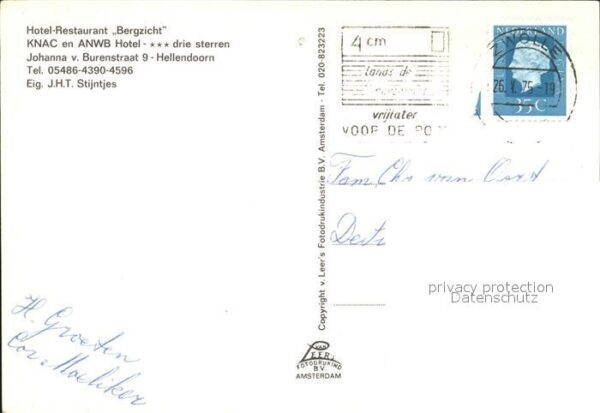 Hotel-Restaurant „Bergzicht"
KNAC en ANWB Hotel - *** drie sterren
Johanna v. Burenstraat 9 - Hellendoorn
Tel. 05486-4390-4596
Eig. J.H.T. Stijntjes
Copyright v. Leer's Fotodrukindustrie B.V. Amsterdam - Tel. 020-823223
4 cm
langs de
vrijlaten
VOOR DE PO
NEDERLAND
ZWOLLE
35 C
Fam. Chr van Oort
privacy protection
Datenschutz
H. Groeten
Cor Moeliker
VAN
LEER'S
FOTODRUKIND
B.V.
AMSTERDAM